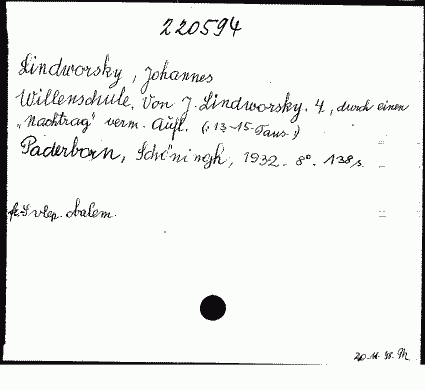 220594
Lindworsky, Johannes
Willenschule. Von J. Lindworsky. 4, durch einen
„Nachtrag" verm. Aufl. (: 13-15. Taus :)
Paderborn, Schöningh, 1932. 8°. 138 s.